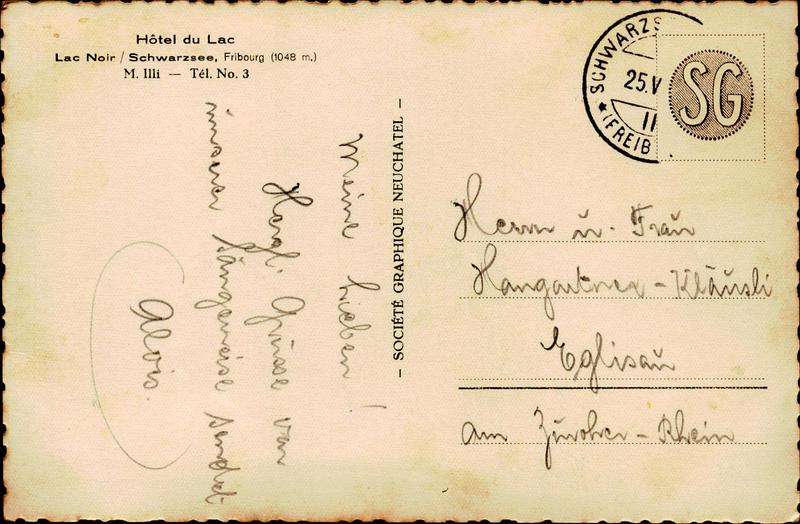 Hôtel du Lac
Lac Noir / Schwarzsee, Fribourg (1048 m.)
M. Illi — Tél. No. 3
Meine Lieben!
Herzl. Grüsse von
unserer Sängerreise sendet
Alois.
– SOCIÉTÉ GRAPHIQUE NEUCHATEL –
SCHWARZS
25.V
II
(FREIB
SG
Herrn u. Frau
Hangartner-Kläusli
Eglisau
am Zürcher-Rhein